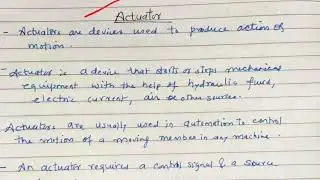 Actuator
- Actuators are devices used to produce action or
motion.
- Actuator is a device that starts or stops mechanical
equipment with the help of hydraulic fluid,
electric current, air or other source.
Actuators are usually used in automation to control
the motion of a moving member in any machine.
- An actuator requires a control signal & a source